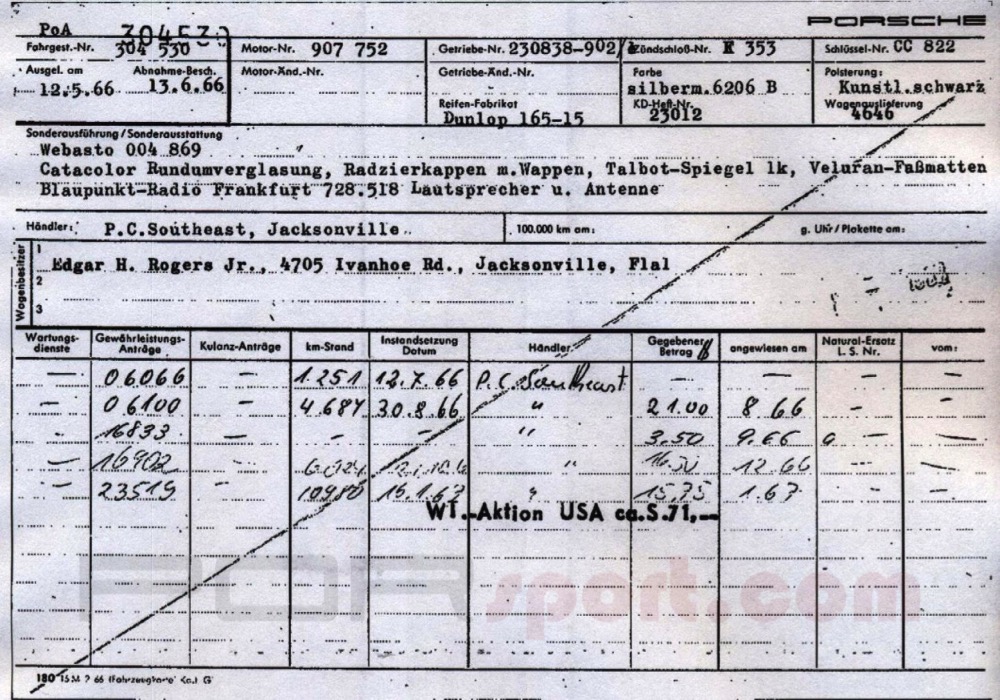 PoA 304530 PORSCHE
Fahrgest.-Nr. 304 530 Motor-Nr. 907 752 Getriebe-Nr. 230838-902/ Zündschloß-Nr. K 353 Schlüssel-Nr. CC 822
Ausgel. am Abnahme-Besch. Motor-Änd.-Nr. Getriebe-Änd.-Nr. Farbe Polsterung:
12.5.66 13.6.66 silberm.6206 B Kunstl.schwarz
Reifen-Fabrikat KD-Heft-Nr. Wagenauslieferung
Dunlop 165-15 23012 4646
Sonderausführung/Sonderausstattung
Webasto 004 869
Catacolor Rundumverglasung, Radzierkappen m.Wappen, Talbot-Spiegel lk, Veluran-Fußmatten
Blaupunkt-Radio Frankfurt 728.518 Lautsprecher u. Antenne
Händler: P.C.Southeast, Jacksonville 100.000 km am: g. Uhr/Plakette am:
Wagenbesitzer
1 Edgar H. Rogers Jr., 4705 Ivanhoe Rd., Jacksonville, Flal
2
3
Wartungs-dienste Gewährleistungs-Anträge Kulanz-Anträge km-Stand Instandsetzung Datum Händler: Gegebener Betrag angewiesen am Natural-Ersatz L. S. Nr. vom:
— 06066 — 1.251 12.7.66 P.C. Southeast — — — —
— 06100 — 4.687 30.8.66 " 21.00 8 66 — —
- 16833 — - — " 3.50 9.66 — —
— 16902 - " 12 66 --- —
— 23519 - 10980 16.1.67 " 15,75 1.67 — —
WT.-Aktion USA ca.S.71,--
sport.com
180